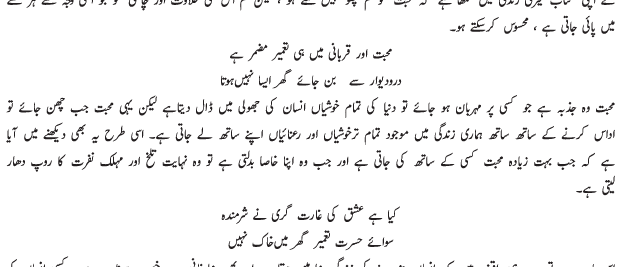 میں پائی جاتی ہے ، محسوس کرسکتے ہو۔
محبت اور قربانی میں ہی تعمیر مضمر ہے
درودیوار سے بن جائے گھر ایسا نہیں ہوتا
محبت وہ جذبہ ہے جو کسی پر مہربان ہو جائے تو دنیا کی تمام خوشیاں انسان کی جھولی میں ڈال دیتاہے لیکن یہی محبت جب چھن جائے تو
اداس کرنے کے ساتھ ساتھ ہماری زندگی میں موجود تمام ترخوشیاں اور رعنائیاں اپنے ساتھ لے جاتی ہے۔ اسی طرح یہ بھی دیکھنے میں آیا
ہے کہ جب بہت زیادہ محبت کسی کے ساتھ کی جاتی ہے اور جب وہ اپنا خاصا بدلتی ہے تو وہ نہایت تلخ اور مہلک نفرت کا روپ دھار
لیتی ہے۔
کیا ہے عشق کی غارت گری نے شرمندہ
سوائے حسرت تعمیر گھر میں خاک نہیں